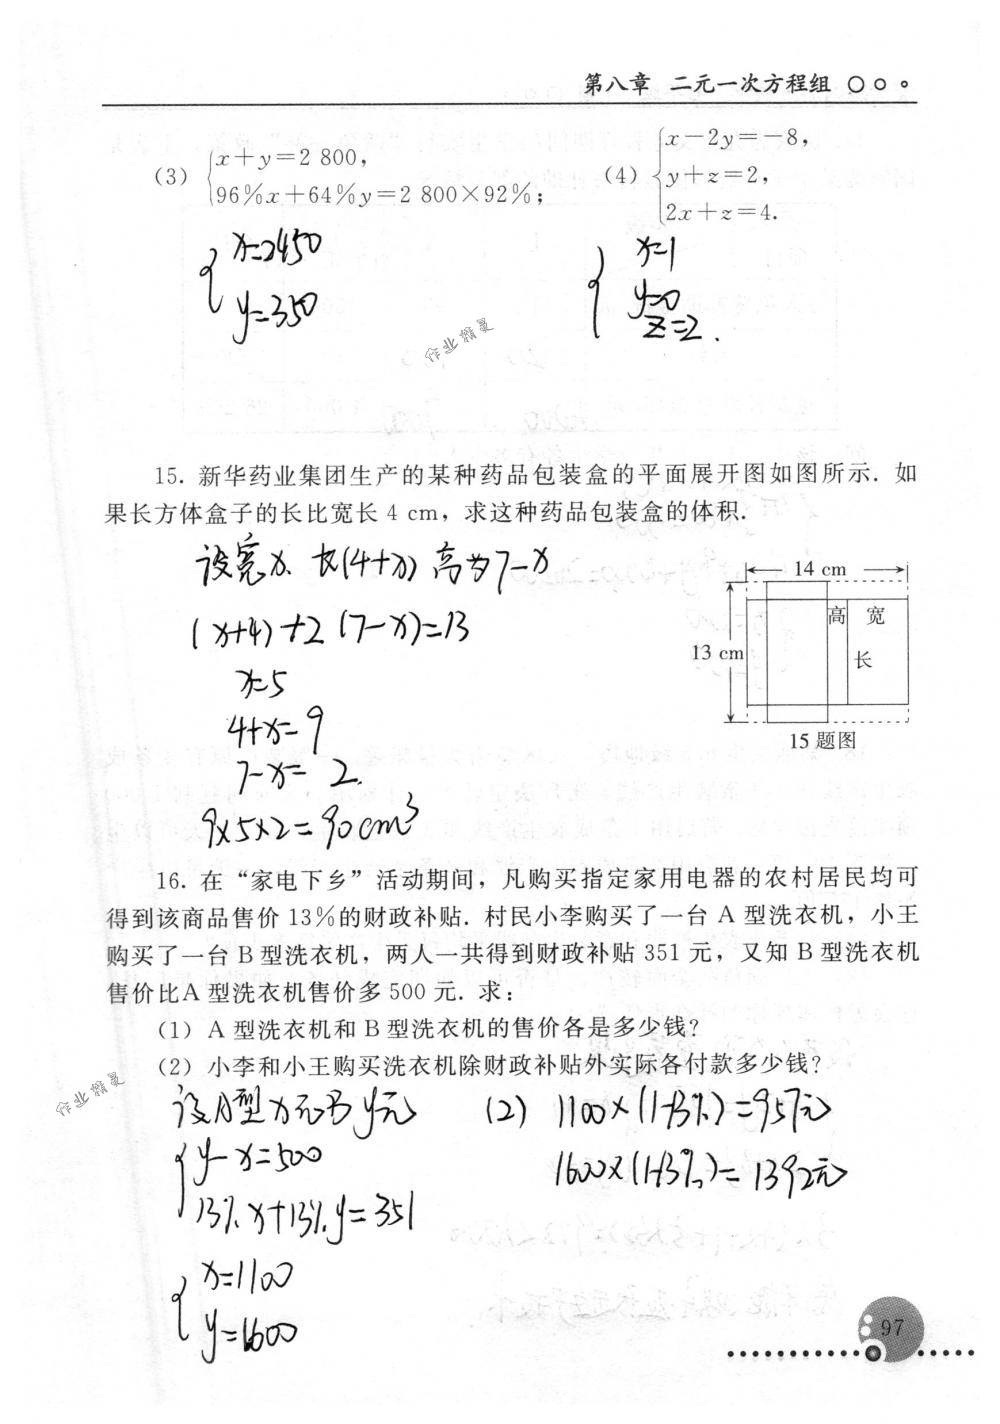 第八章 二元一次方程组
(3) {x+y=2 800,
96%x+64%y=2 800×92%;
(4) {x-2y=-8,
y+z=2,
2x+z=4.
{x=2450
y=350
{x=1
y=0
z=2.
作业精灵
15. 新华药业集团生产的某种药品包装盒的平面展开图如图所示. 如
果长方体盒子的长比宽长 4 cm, 求这种药品包装盒的体积.
设宽x. 长(4+x) 高为7-x
(x+4)+2(7-x)=13
x=5
4+x=9
7-x=2.
9×5×2=90cm³
14 cm
高 宽
13 cm
长
15题图
16. 在“家电下乡”活动期间, 凡购买指定家用电器的农村居民均可
得到该商品售价 13%的财政补贴. 村民小李购买了一台 A 型洗衣机, 小王
购买了一台 B 型洗衣机, 两人一共得到财政补贴 351 元, 又知 B 型洗衣机
售价比A 型洗衣机售价多 500 元. 求:
(1) A 型洗衣机和 B 型洗衣机的售价各是多少钱?
(2) 小李和小王购买洗衣机除财政补贴外实际各付款多少钱?
作业精灵
设A型x元B y元
{y-x=500
13%x+13%y=351
{x=1100
y=1600
(2) 1100×(1-13%)=957元
1600×(1-13%)=1392元
97